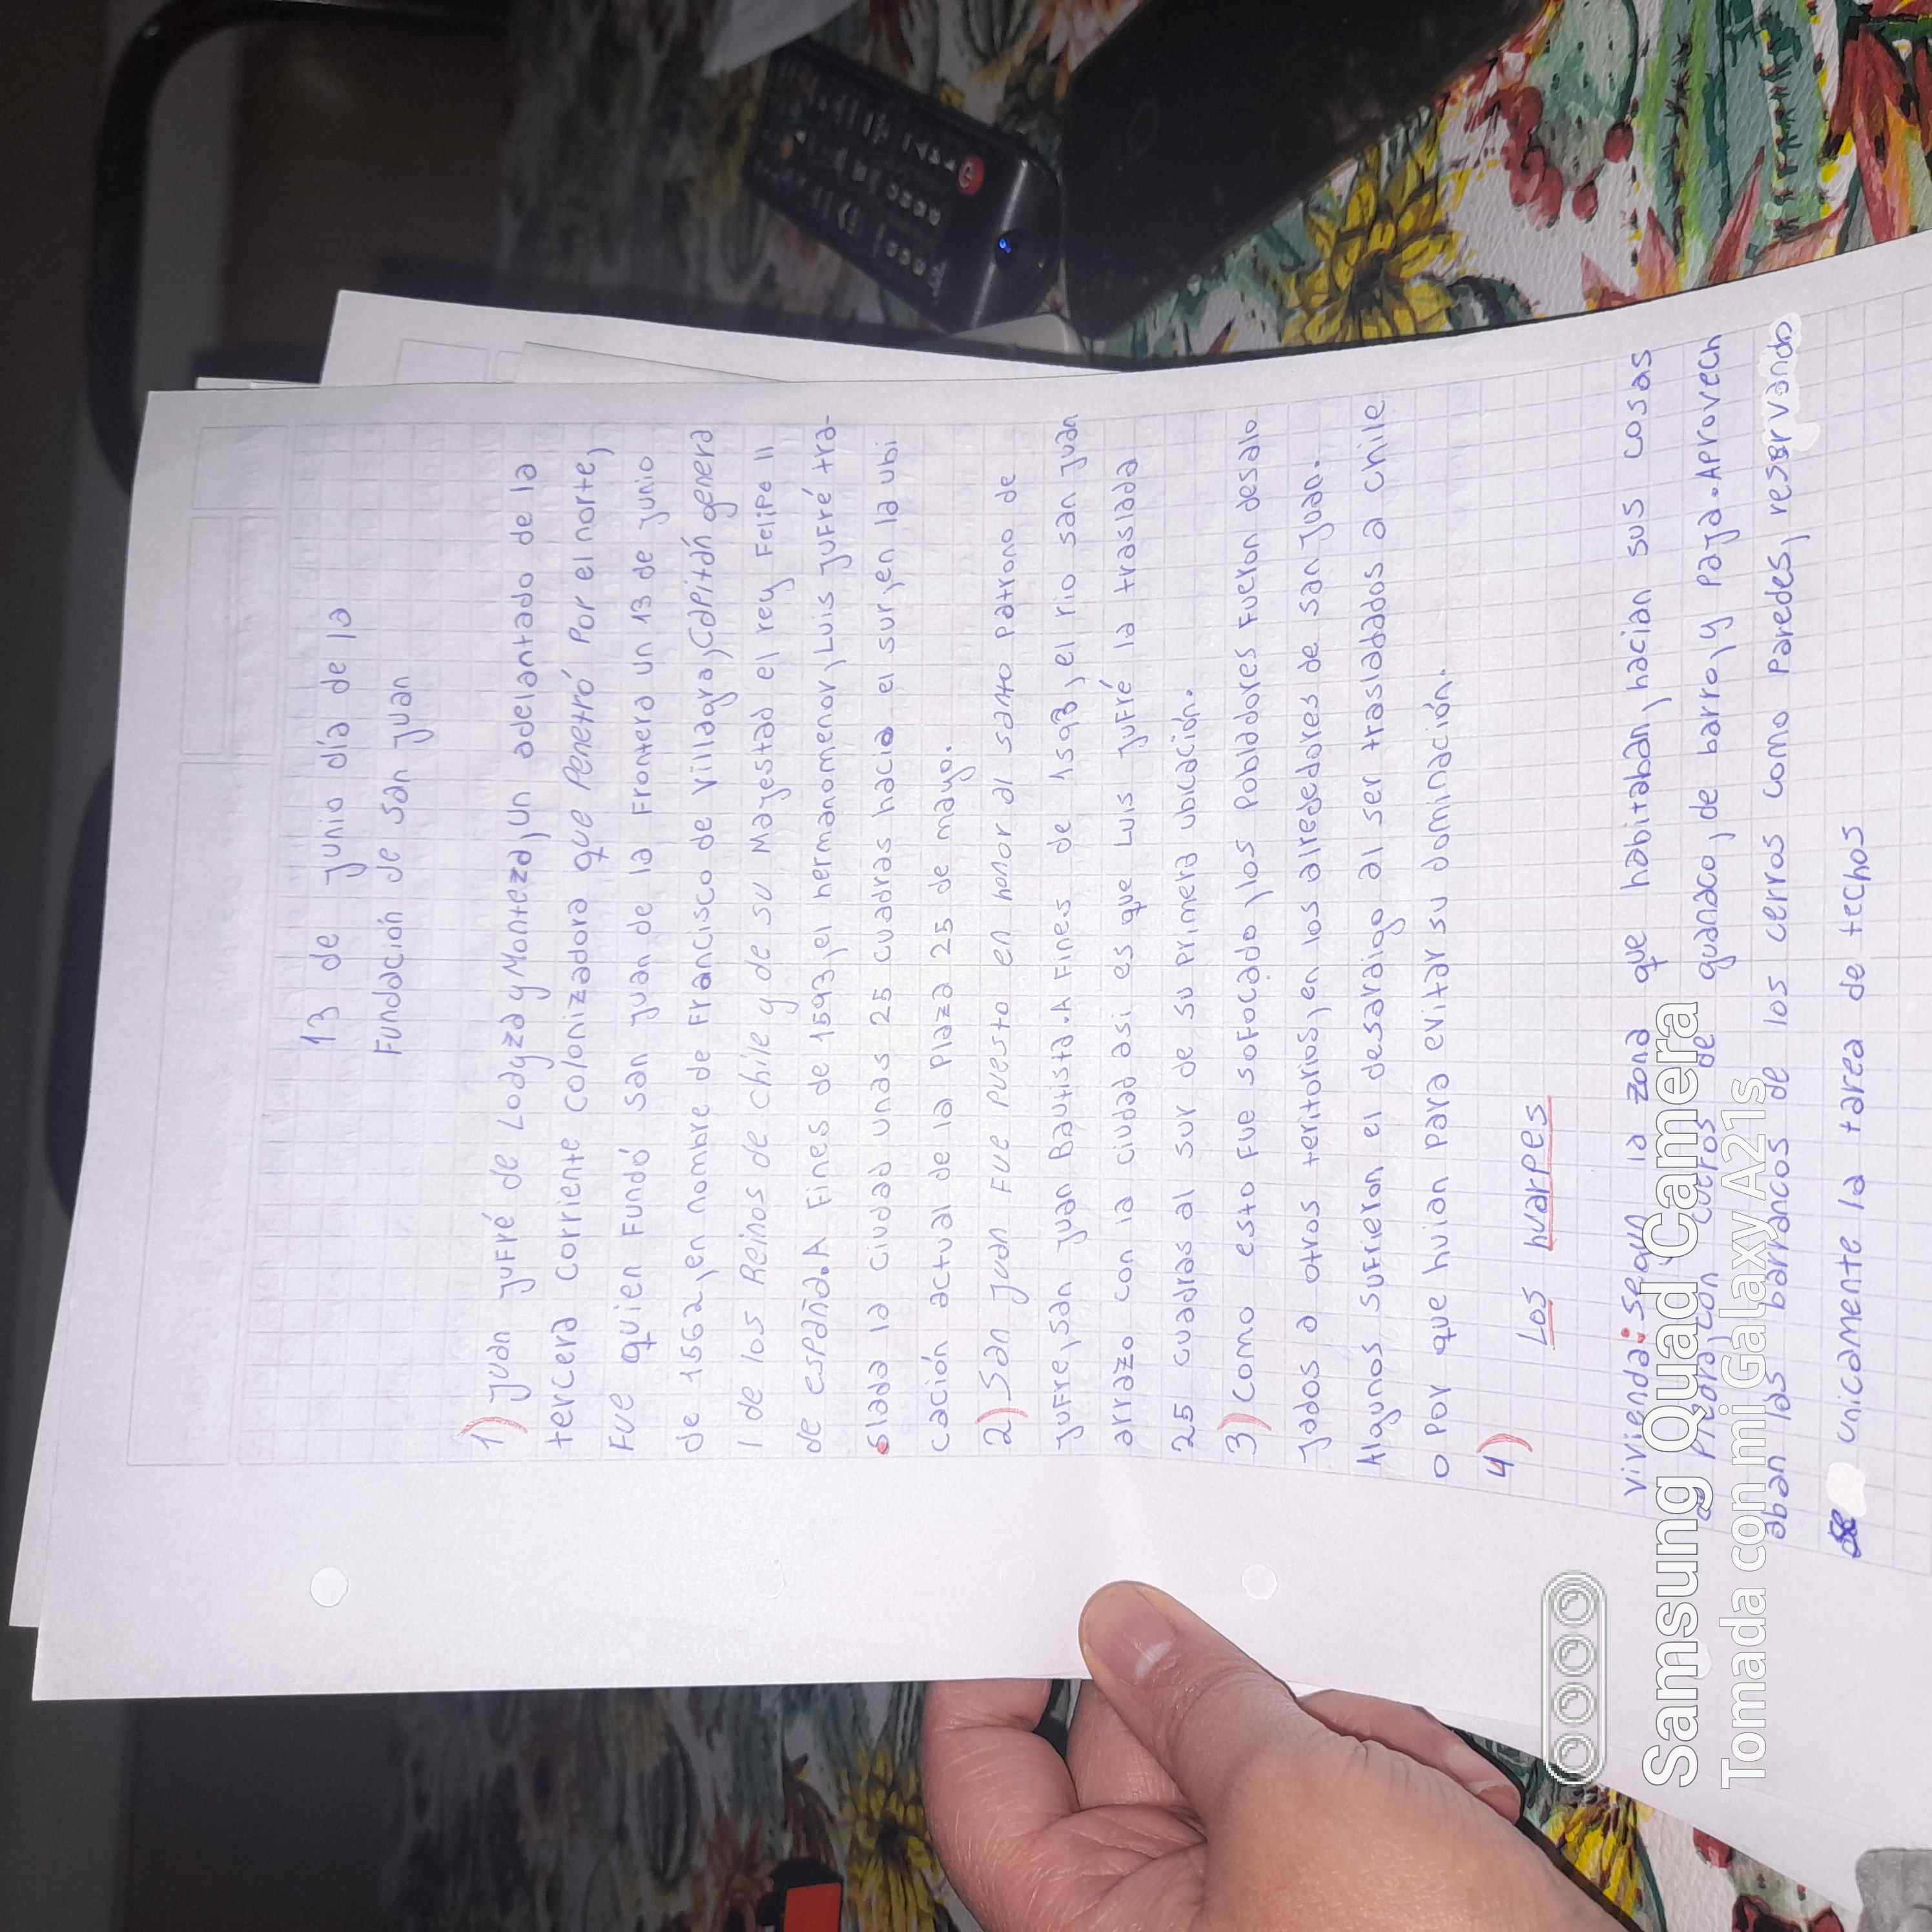 13 de junio día de la
Fundación de san juan
1) juan juFré de Loayza y Monteza, un adelantado de la
tercera corriente colonizadora que Penetró Por el norte,
Fue quien Fundó san juan de la Frontera un 13 de junio
de 1562, en nombre de Francisco de Villagra, Capitán genera
l de los Reinos de chile y de su Majestad el rey Felipe II
de españa. A Fines de 1593, el hermanomenor, Luis juFré tra-
slada la ciudad unas 25 cuadras hacia el sur, en la ubi
cación actual de la Plaza 25 de mayo.
2) San juan Fue Puesto en honor al santo Patrono de
juFre, san juan Bautista. A Fines de 1593, el rio san juan
arrazo con la ciudad asi es que Luis juFré la traslada
25 cuadras al sur de su Primera ubicación.
3) Como esto Fue soFocado, los Pobladores Fueron desalo
jados a otros teritorios, en los alrededores de san juan.
Algunos suFrieron el desaraigo al ser trasladados a chile
o Por que huian Para evitar su dominación.
4)
Los huarpes
vivienda: según la zona que habitaban, hacian sus cosas
de Piedra, con cueros de guanaco, de barro, y Paja. Aprovech
aban las barrancos de los cerros como Paredes, reservando
unicamente la tarea de techos
Samsung Quad Camera
Tomada con mi Galaxy A21s